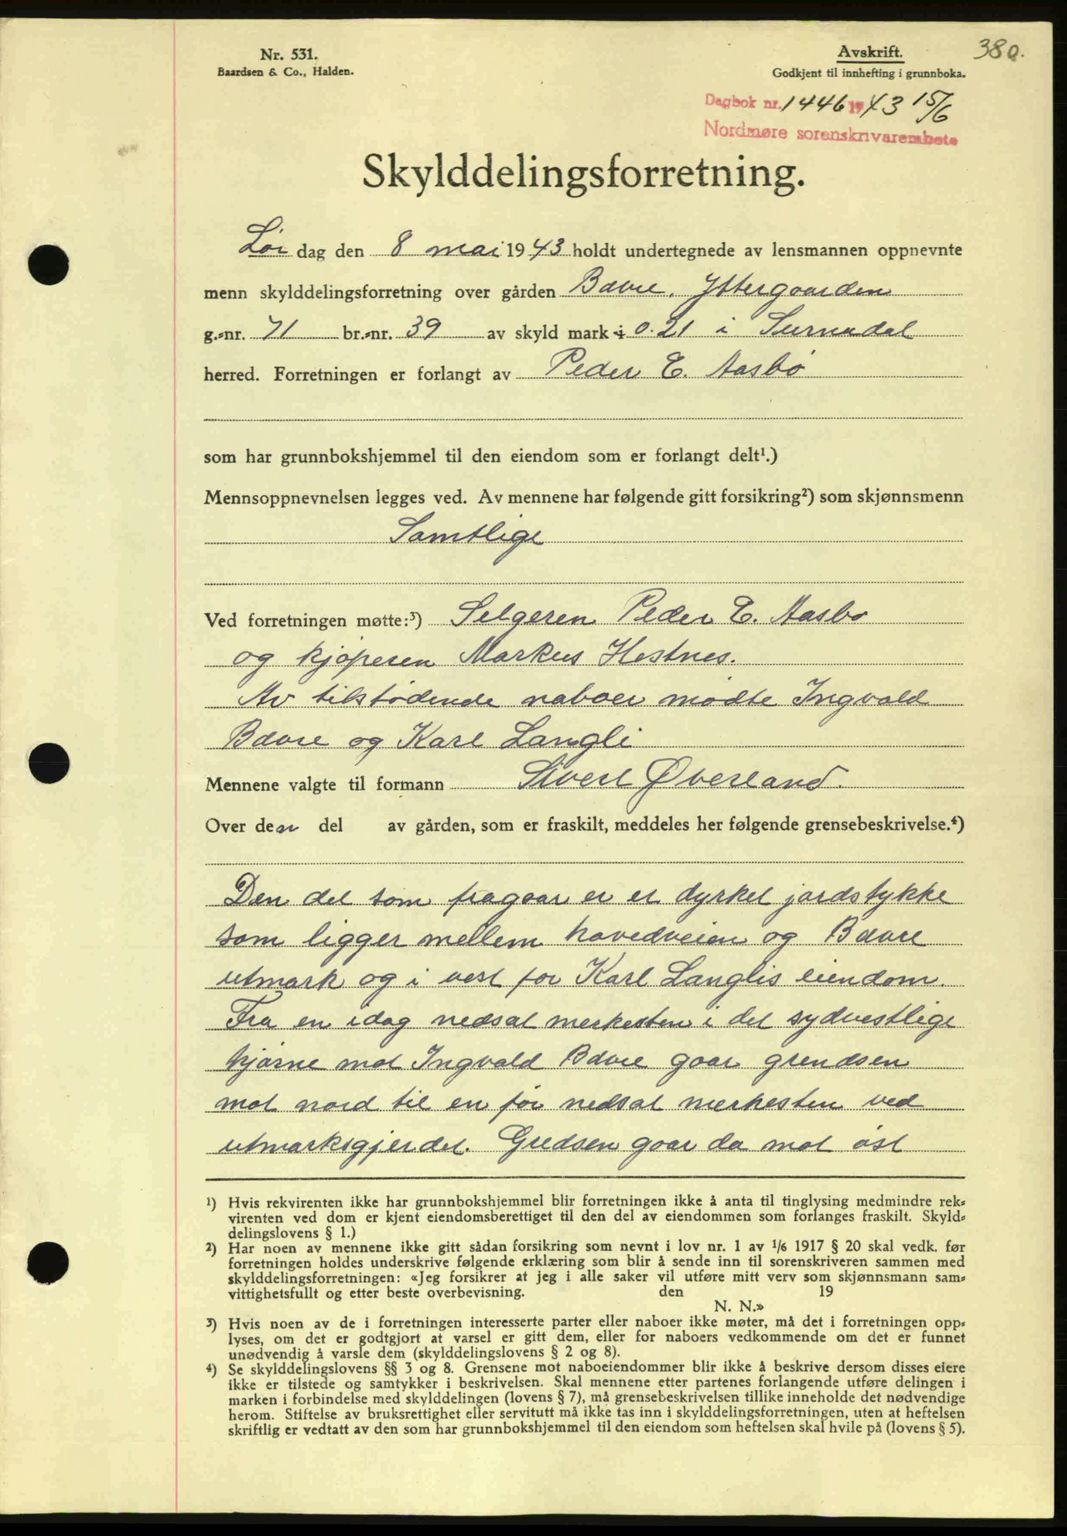 380.
Nr. 531.
Baardsen & Co., Halden.
Avskrift.
Godkjent til innhefting i grunnboka.
Dagbok nr. 1446 1943 15/6
Nordmøre sorenskrivarembete
Skylddelingsforretning.
Lør dag den 8 mai 1943 holdt undertegnede av lensmannen oppnevnte
menn skylddelingsforretning over gården Bævre, Yttergaarden
g.-nr. 71 br.-nr. 39 av skyld mark 0.21 i Surnadal
herred. Forretningen er forlangt av Peder E. Aasbø
som har grunnbokshjemmel til den eiendom som er forlangt delt¹.)
Mennsoppnevnelsen legges ved. Av mennene har følgende gitt forsikring²) som skjønnsmenn
Samtlige
Ved forretningen møtte:³) Selgeren Peder E. Aasbø
og kjøperen Markus Hestnes.
Av tilstødende naboer mødte Ingvald
Bævre og Karl Langli
Mennene valgte til formann Sivert Øverland.
Over den del av gården, som er fraskilt, meddeles her følgende grensebeskrivelse.⁴)
Den del som fragaar er et dyrket jordstykke
som ligger mellem hovedveien og Bævre
utmark og i vest for Karl Langlis eiendom.
Fra en idag nedsat merkesten i det sydvestlige
hjørne mot Ingvald Bævre gaar grendsen
mot nord til en før nedsat merkesten ved
utmarksgjerdet. Gredsen gaar da mot øst
¹) Hvis rekvirenten ikke har grunnbokshjemmel blir forretningen ikke å anta til tinglysing medmindre rek-
virenten ved dom er kjent eiendomsberettiget til den del av eiendommen som forlanges fraskilt. Skyld-
delingslovens § 1.)
²) Har noen av mennene ikke gitt sådan forsikring som nevnt i lov nr. 1 av 1/6 1917 § 20 skal vedk. før
forretningen holdes underskrive følgende erklæring som blir å sende inn til sorenskriveren sammen med
skylddelingsforretningen: «Jeg forsikrer at jeg i alle saker vil utføre mitt verv som skjønnsmann sam-
vittighetsfullt og etter beste overbevisning. den 19
N. N.»
³) Hvis noen av de i forretningen interesserte parter eller naboer ikke møter, må det i forretningen opp-
lyses, om det er godtgjort at varsel er gitt dem, eller for naboers vedkommende om det er funnet
unødvendig å varsle dem (skylddelingslovens § 2 og 8).
⁴) Se skylddelingslovens §§ 3 og 8. Grensene mot naboeiendommer blir ikke å beskrive dersom disses eiere
ikke er tilstede og samtykker i beskrivelsen. Skal mennene etter partenes forlangende utføre delingen i
marken i forbindelse med skylddelingen (lovens § 7), må grensebeskrivelsen tillike inneholde det nødvendige
herom. Stiftelse av bruksrettighet eller servitutt må ikke tas inn i skylddelingsforretningen, uten at heftelsen
skriftlig er vedtatt av den som har grunnbokshjemmel til den eiendom som heftelsen skal hvile på (lovens § 5).